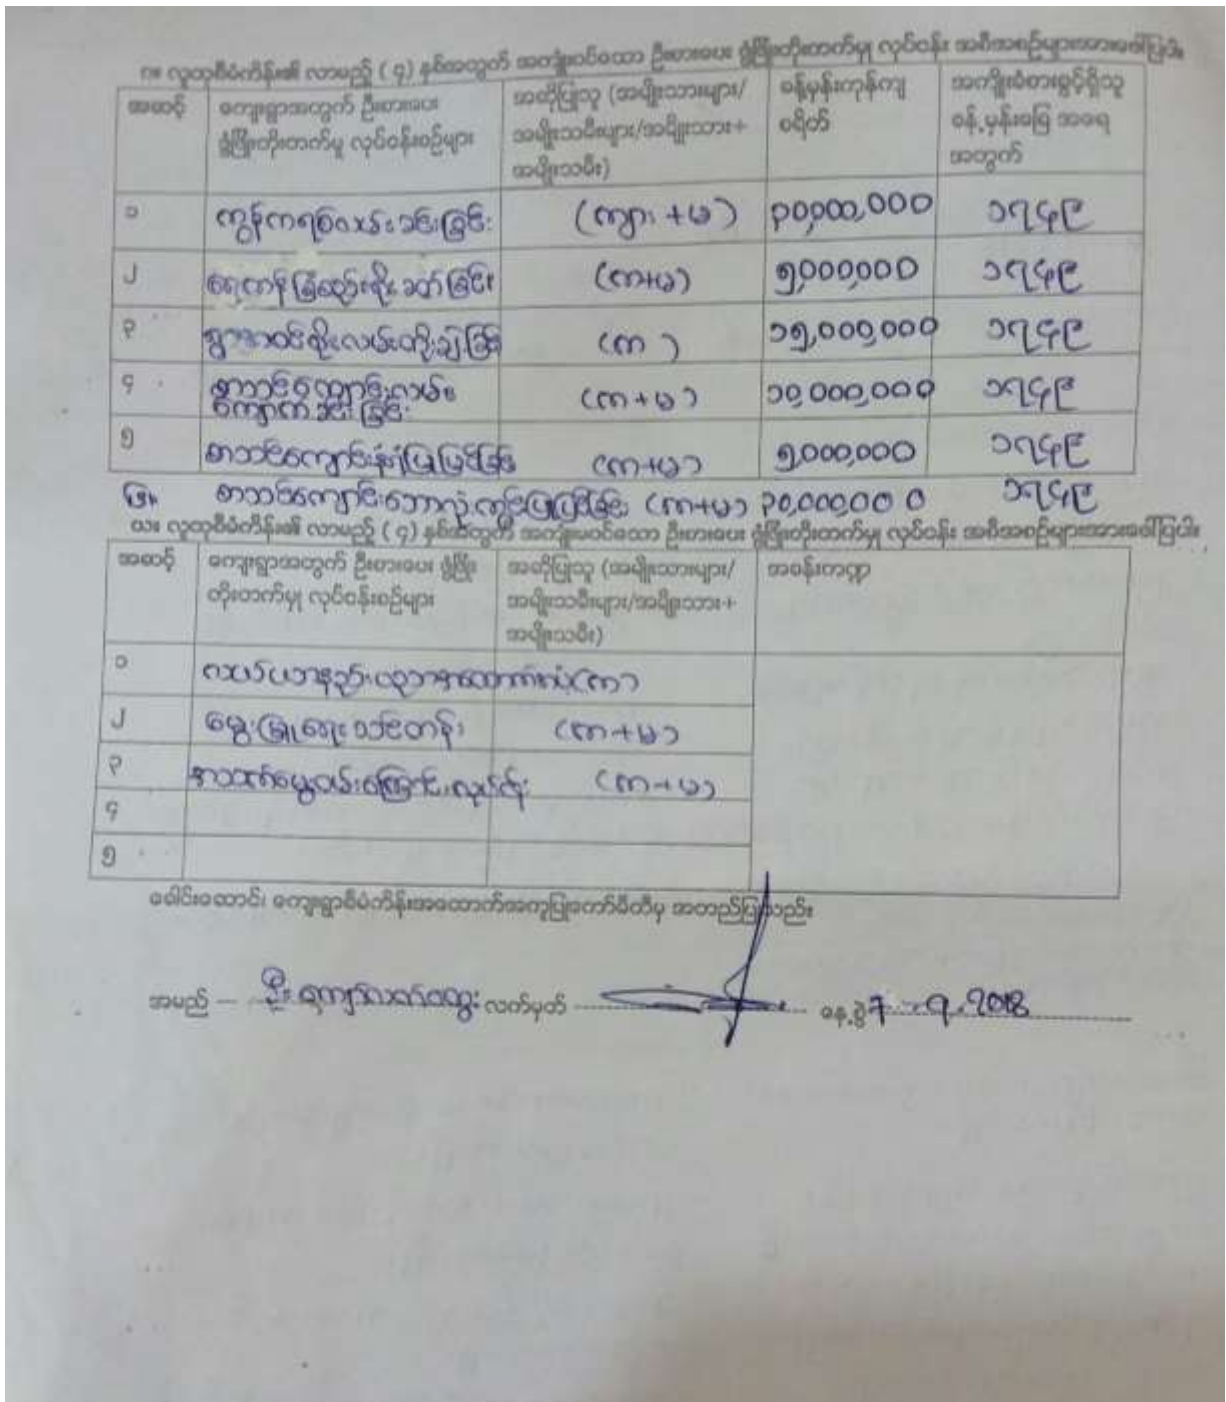 ဂ။ လူထုစီမံကိန်း၏ လာမည့် ( ၄ ) နှစ်အတွက် အကျုံးဝင်သော ဦးစားပေး ဖွံ့ဖြိုးတိုးတက်မှု လုပ်ငန်း အစီအစဉ်များအားဖော်ပြပါ။
အဆင့် ကျေးရွာအတွက် ဦးစားပေး ဖွံ့ဖြိုးတိုးတက်မှု လုပ်ငန်းစဉ်များ အဆိုပြုသူ (အမျိုးသားများ/ အမျိုးသမီးများ/အမျိုးသား+ အမျိုးသမီး) ခန့်မှန်းကုန်ကျ စရိတ် အကျိုးခံစားခွင့်ရှိသူ ခန့်မှန်းခြေ အရေ အတွက်
၁ ကွန်ကရစ်လမ်းခင်းခြင်း (ကျား +မ) ၃၀,၀၀၀,၀၀၀ ၁၇၄၉
၂ ရေကန်ခြံစည်းရိုးခတ်ခြင်း (က+မ) ၅,၀၀၀၀၀၀ ၁၇၄၉
၃ လမ်းတိုးချဲ့ခြင်း (က ) ၁၅,၀၀၀,၀၀၀ ၁၇၄၉
၄ စာသင်ကျောင်းလမ်း ကျောက်ခင်းခြင်း (က+မ) ၁၀,၀၀၀,၀၀၀ ၁၇၄၉
၅ စာသင်ကျောင်း ပြုပြင်ခြင်း (က+မ) ၅,၀၀၀,၀၀၀ ၁၇၄၉
၆။ စာသင်ကျောင်းဘောလုံးကွင်းပြုပြင်ခြင်း (က+မ) ၃၀,၀၀၀,၀၀ ၀ ၁၇၄၉
ဃ။ လူထုစီမံကိန်း၏ လာမည့် ( ၄ ) နှစ်အတွက် အကျုံးမဝင်သော ဦးစားပေး ဖွံ့ဖြိုးတိုးတက်မှု လုပ်ငန်း အစီအစဉ်များအားဖော်ပြပါ။
အဆင့် ကျေးရွာအတွက် ဦးစားပေး ဖွံ့ဖြိုး တိုးတက်မှု လုပ်ငန်းစဉ်များ အဆိုပြုသူ (အမျိုးသားများ/ အမျိုးသမီးများ/အမျိုးသား+ အမျိုးသမီး) အခန်းကဏ္ဍ
၁ လယ်ယာနည်းပညာအထောက်အပံ့ (က)
၂ မွေးမြူရေးသင်တန်း (က+မ)
၃ အသက်မွေးဝမ်းကြောင်းလုပ်ငန်း (က+မ)
၄
၅
ခေါင်းဆောင်၊ ကျေးရွာစီမံကိန်းအထောက်အကူပြုကော်မီတီမှ အတည်ပြုသည်။
အမည် – ဦးကျော်သက်ထွေး လက်မှတ် နေ့စွဲ ၇ . ၇ . 2018